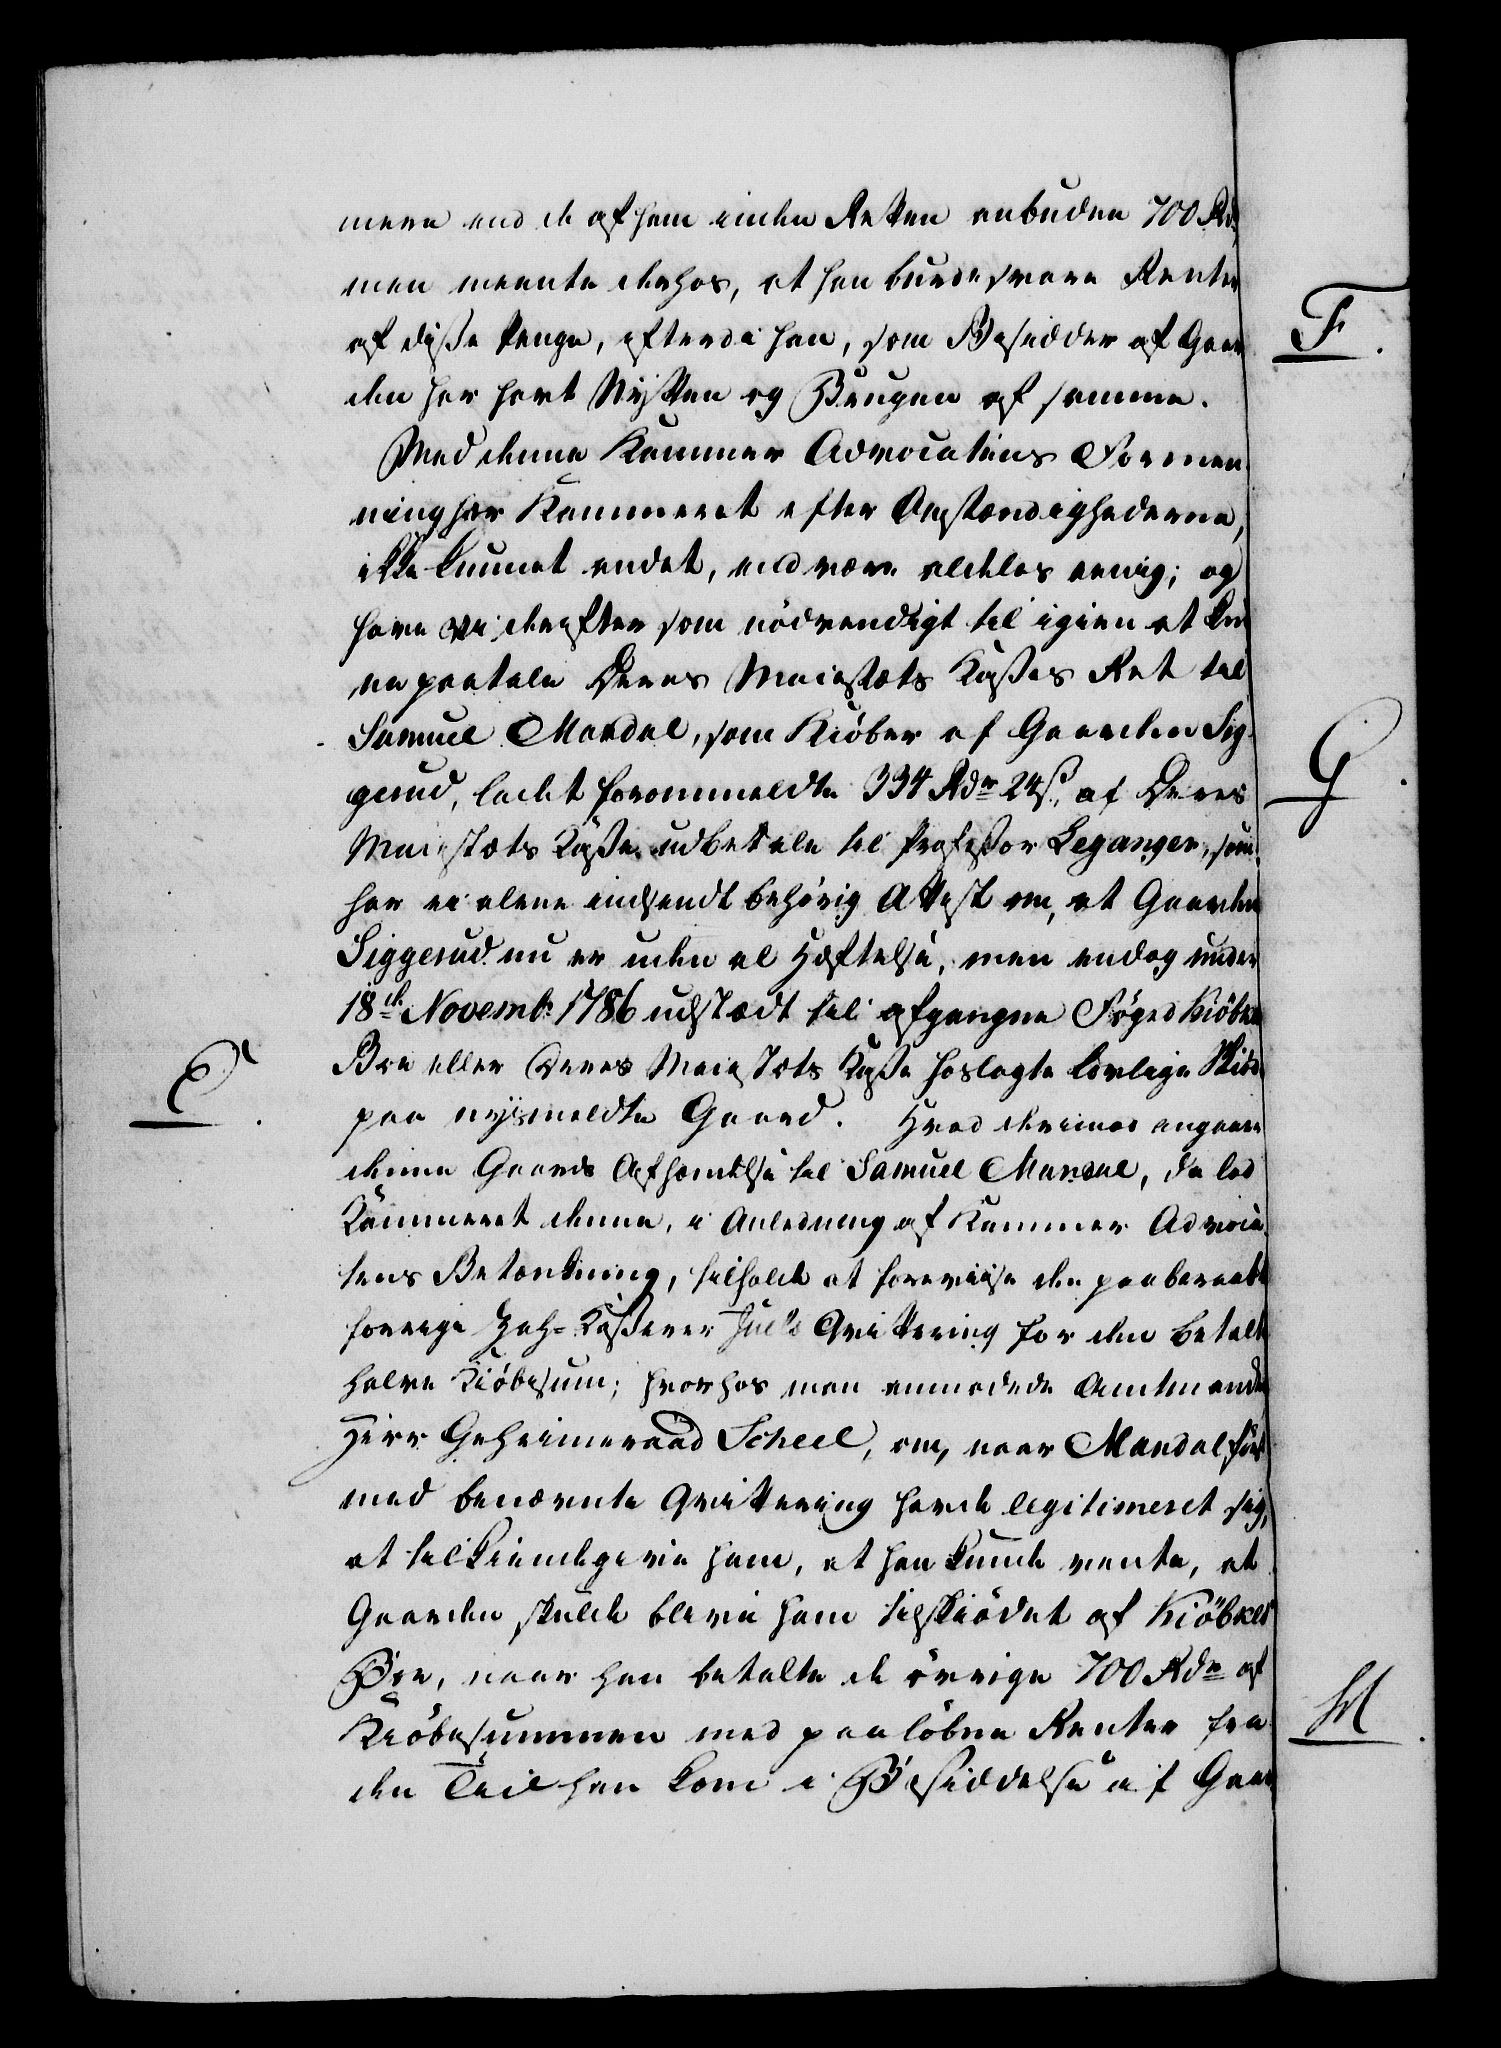 mere end de af ham inden Retten anbudne 700 Rdr,
men meente derhos, at han burde svare Renter
af disse Penge, efterdi han, som Besidder af Gaar
den har havt Nytten og Brugen af samme.
Med denne Kammer Advocatens Formee
ning har Kammeret efter Omstændighederne,
ikke kunnet andet, end være aldeles eenig; og
have vi derefter som nödvendigt til igien at kun
ne paatale Deres Maiestæts Kasses Ret til
Samuel Mandal, som Kiöber af Gaarden Sig
gerud, ladet forommeldte 334 Rdr 24 ß, af Deres
Maiestæts Kasse udbetale til Professor Leganger, som
har ei alene indsendt behörig Attest om, at Gaarden
Siggerud nu er uden al Hæftelse, men endog under
18de Novemb: 1786 udstædt til afgangne Foged Kiöbke
Boe eller Deres Maiestæts Kasse hoslagte lovlige Skiöde
paa nysmeldte Gaard. Hvad derimod angaaer
denne Gaards Afhændelse til Samuel Mandal, da lod
Kammeret denne, i Anledning af Kammer Advoca
tens Betænkning, tilholde at foreviise den paaberaabte
forrige Zahl-Kasserer Juels Qvittering for den betalte
halve Kiöbesum; hvorhos man anmodede Amtmanden
Herr Geheimeraad Scheel, om, naar Mandal först
med benævnte Qvittering havde legitimeret sig,
at tilkiendegive ham, at han kunde vente, at
Gaarden skulde blive ham tilskiödet af Kiöbkes
Boe, naar han betalte de övrige 700 Rdr af
Kiöbesummen med paalöbne Renter fra
den Tiid han kom i Besiddelse af Gaar
F.
G.
E.
H.